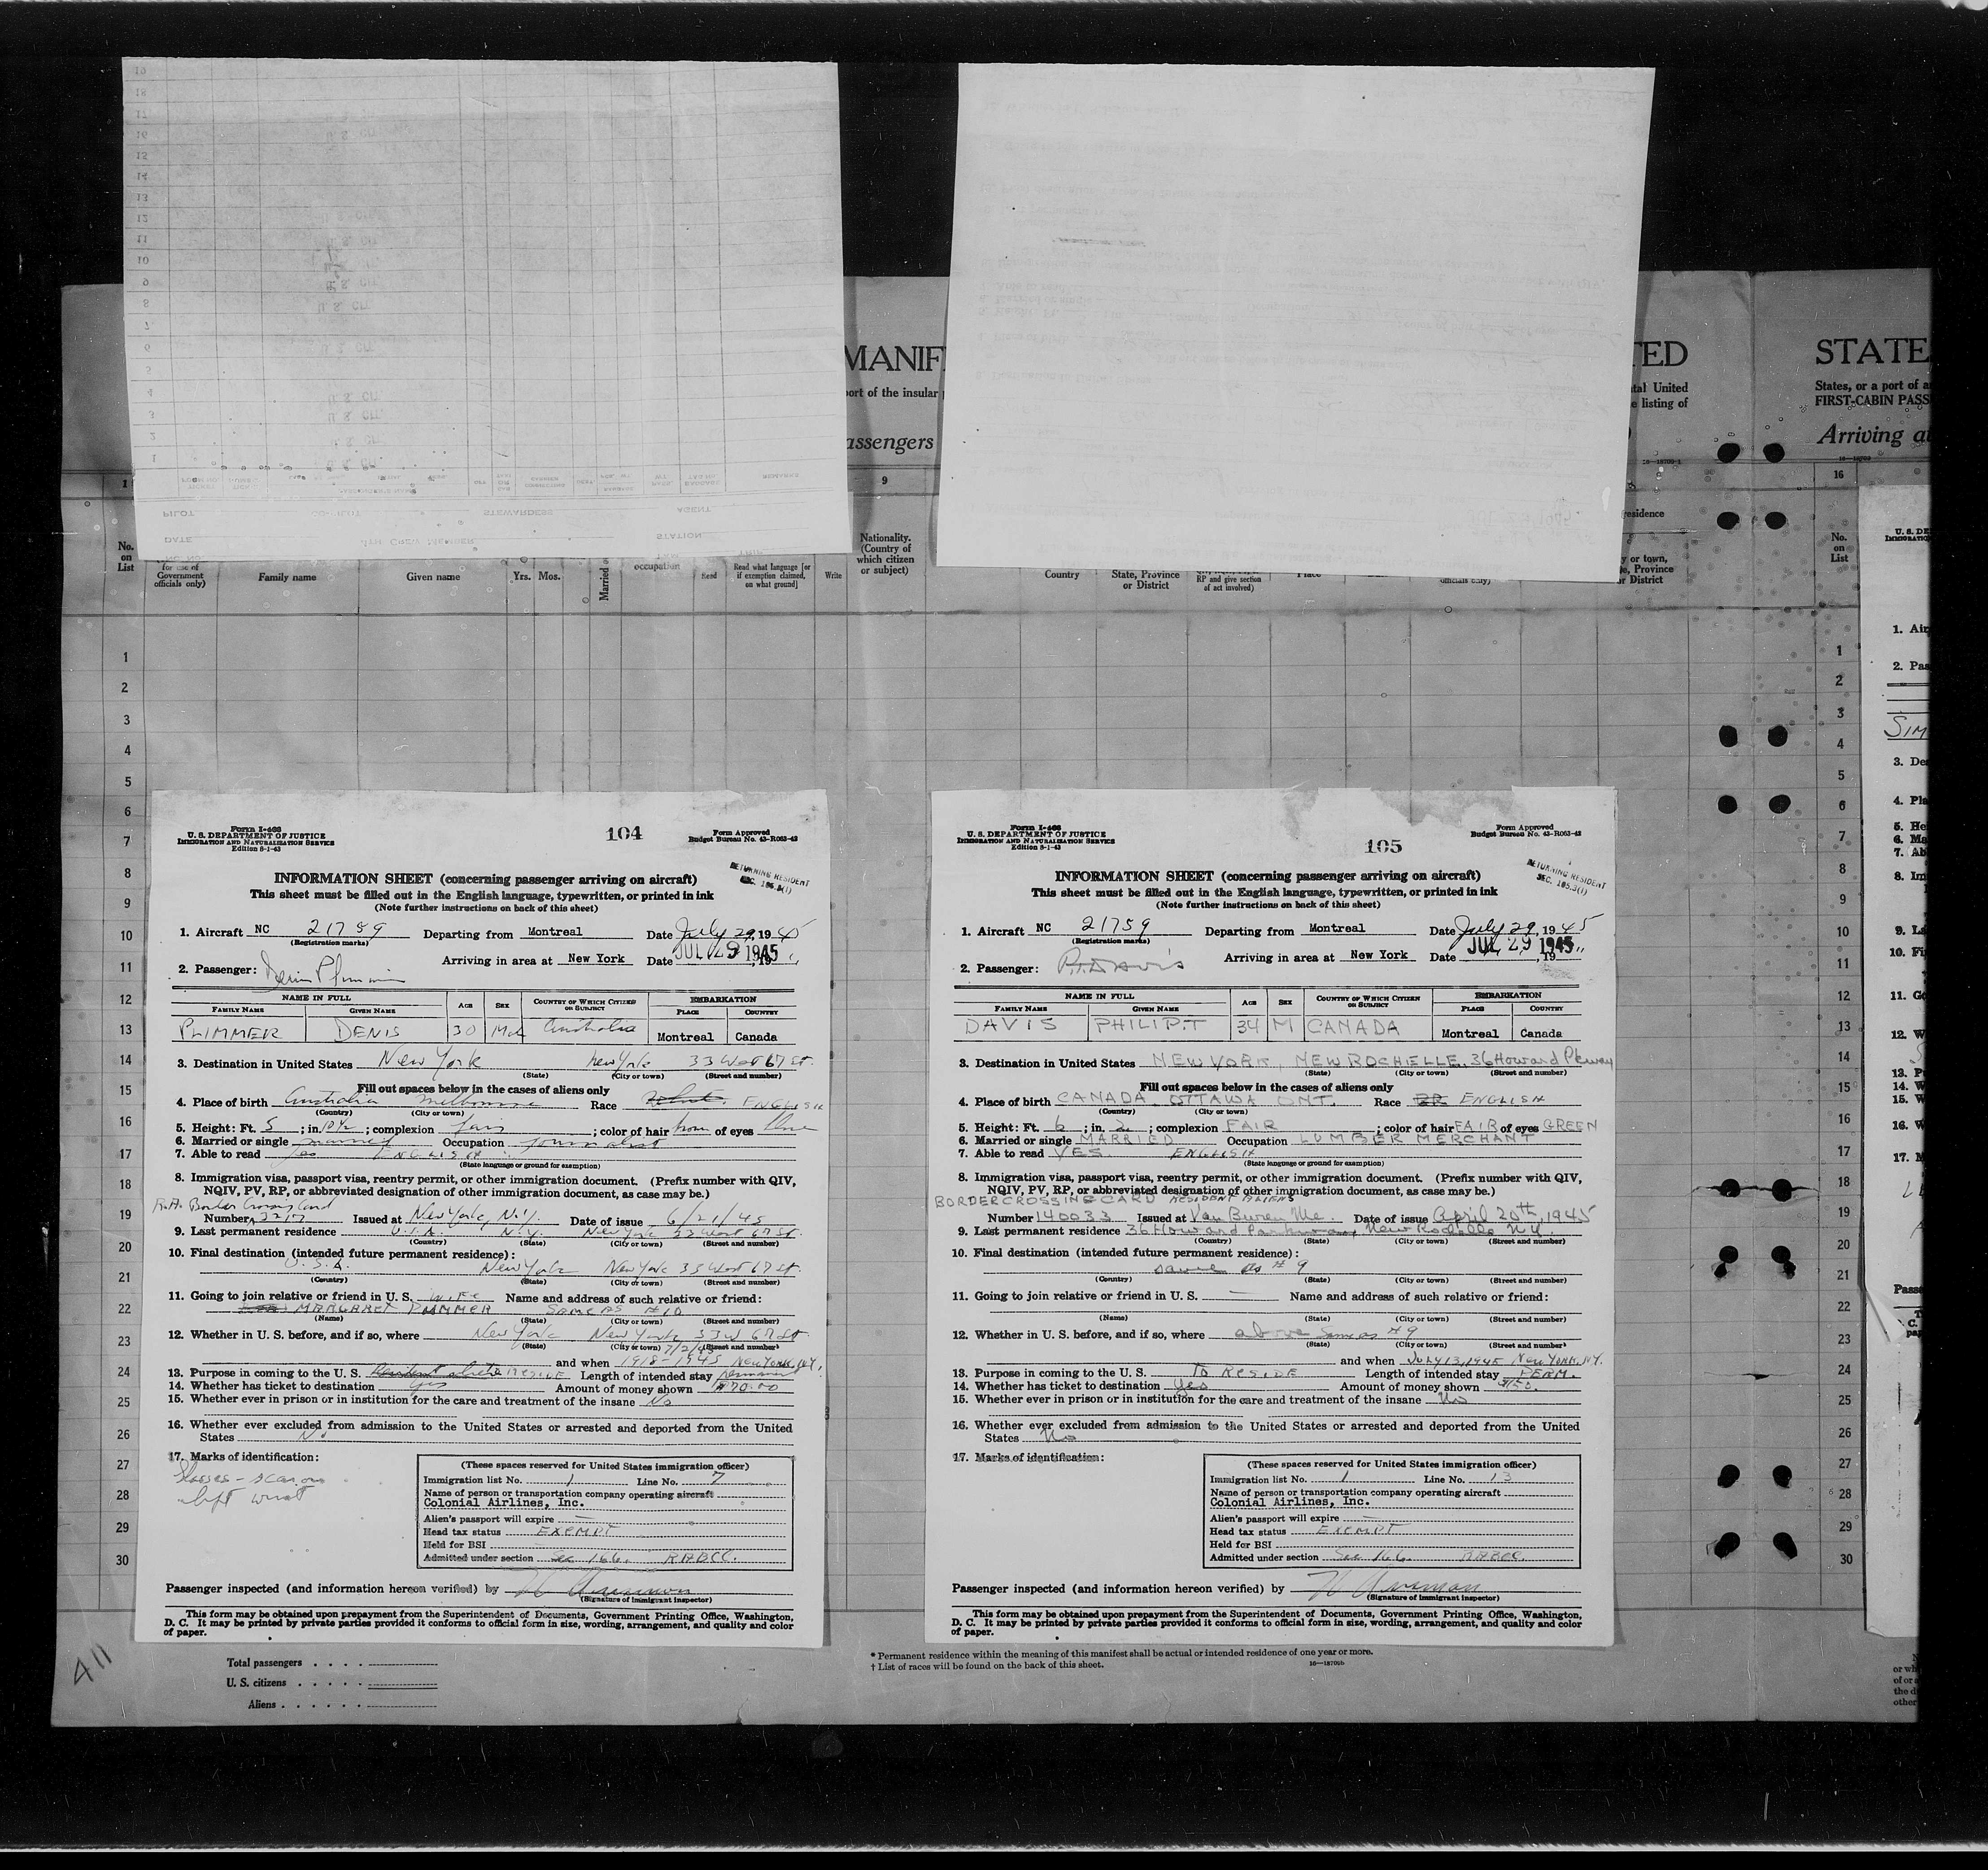 MANIF
TED
STATE
port of the insular
tal United
e listing of
States, or a port of a
FIRST-CABIN PASS
assengers
Arriving at
1
9
16
residence
No.
on
List
(for use of
Government
officials only)
Family name
Given name
Yrs. Mos.
occupation
Read
Read what language [or
if exemption claimed,
on what ground]
Write
Nationality.
(Country of
which citizen
or subject)
Country
State, Province
or District
RP and give section
of act involved)
Place
officials only)
y or town,
e, Province
r District
No.
on
List
1
2
3
4
5
6
7
8
9
10
11
12
13
14
15
16
17
18
19
20
21
22
23
24
25
26
27
28
29
30
Form I-466
U. S. DEPARTMENT OF JUSTICE
IMMIGRATION AND NATURALIZATION SERVICE
Edition 8-1-43
104
Form Approved
Budget Bureau No. 43-R063-42
RETURNING RESIDENT
SEC. 105.3(1)
INFORMATION SHEET (concerning passenger arriving on aircraft)
This sheet must be filled out in the English language, typewritten, or printed in ink
(Note further instructions on back of this sheet)
1. Aircraft NC 21759 Departing from Montreal Date July 29, 1945
(Registration marks)
Arriving in area at New York Date JUL 29 1945, 19
2. Passenger: Denis Plimmer
NAME IN FULL AGE SEX COUNTRY OF WHICH CITIZEN OR SUBJECT EMBARKATION
FAMILY NAME GIVEN NAME PLACE COUNTRY
PLIMMER DENIS 30 Male Australia Montreal Canada
3. Destination in United States New York New York 33 West 67 St.
(State) (City or town) (Street and number)
Fill out spaces below in the cases of aliens only
4. Place of birth Australia Melbourne Race ENGLISH
(Country) (City or town)
5. Height: Ft. 5; in. 10½; complexion fair; color of hair brown of eyes blue
6. Married or single married Occupation journalist
7. Able to read yes ENGLISH
(State language or ground for exemption)
8. Immigration visa, passport visa, reentry permit, or other immigration document. (Prefix number with QIV,
NQIV, PV, RP, or abbreviated designation of other immigration document, as case may be.)
R.A. Border Crossing Card
Number 3217 Issued at New York, N.Y. Date of issue 6/21/45
9. Last permanent residence U.S.A. N.Y. New York 33 West 67 St.
(Country) (State) (City or town) (Street and number)
10. Final destination (intended future permanent residence):
U.S.A. New York New York 33 West 67 St.
(Country) (State) (City or town) (Street and number)
11. Going to join relative or friend in U. S. WIFE Name and address of such relative or friend:
MARGARET PLIMMER SAME AS #10
(Name) (State) (City or town) (Street and number)
12. Whether in U. S. before, and if so, where New York New York 33 W 67 St.
(State) (City or town) (Street and number)
and when 1918-1945 NEW YORK, N.Y.
13. Purpose in coming to the U. S. RESIDE Length of intended stay permanent
14. Whether has ticket to destination yes Amount of money shown $70.00
15. Whether ever in prison or in institution for the care and treatment of the insane No
16. Whether ever excluded from admission to the United States or arrested and deported from the United
States No
17. Marks of identification:
Glasses - scar on
left wrist
(These spaces reserved for United States immigration officer)
Immigration list No. 1 Line No. 7
Name of person or transportation company operating aircraft
Colonial Airlines, Inc.
Alien's passport will expire —
Head tax status EXEMPT
Held for BSI
Admitted under section Sec 166. RABCC.
Passenger inspected (and information hereon verified) by
(Signature of immigrant inspector)
This form may be obtained upon prepayment from the Superintendent of Documents, Government Printing Office, Washington,
D. C. It may be printed by private parties provided it conforms to official form in size, wording, arrangement, and quality and color
of paper.
Form I-466
U. S. DEPARTMENT OF JUSTICE
IMMIGRATION AND NATURALIZATION SERVICE
Edition 8-1-43
105
Form Approved
Budget Bureau No. 43-R063-42
RETURNING RESIDENT
SEC. 105.3(1)
INFORMATION SHEET (concerning passenger arriving on aircraft)
This sheet must be filled out in the English language, typewritten, or printed in ink
(Note further instructions on back of this sheet)
1. Aircraft NC 21759 Departing from Montreal Date July 29, 1945
(Registration marks)
Arriving in area at New York Date JUL 29 1945, 19
2. Passenger: P.T. DAVIS
NAME IN FULL AGE SEX COUNTRY OF WHICH CITIZEN OR SUBJECT EMBARKATION
FAMILY NAME GIVEN NAME PLACE COUNTRY
DAVIS PHILIP.T 34 M CANADA Montreal Canada
3. Destination in United States NEW YORK, NEW ROCHELLE, 36 Howard Pkway
(State) (City or town) (Street and number)
Fill out spaces below in the cases of aliens only
4. Place of birth CANADA OTTAWA ONT. Race BR ENGLISH
(Country) (City or town)
5. Height: Ft. 6; in. 2; complexion FAIR; color of hair FAIR of eyes GREEN
6. Married or single MARRIED Occupation LUMBER MERCHANT
7. Able to read YES. ENGLISH
(State language or ground for exemption)
8. Immigration visa, passport visa, reentry permit, or other immigration document. (Prefix number with QIV,
NQIV, PV, RP, or abbreviated designation of other immigration document, as case may be.)
BORDERCROSSING CARD RESIDENT ALIENS
Number 140033 Issued at Van Buren Me. Date of issue April 20th, 1945
9. Last permanent residence 36 Howard Parkway, New Rochelle N.Y.
(Country) (State) (City or town) (Street and number)
10. Final destination (intended future permanent residence):
same as #9
(Country) (State) (City or town) (Street and number)
11. Going to join relative or friend in U. S. — Name and address of such relative or friend:
(Name) (State) (City or town) (Street and number)
12. Whether in U. S. before, and if so, where above Same as #9
(State) (City or town) (Street and number)
and when JULY 13, 1945 NEW YORK, N.Y.
13. Purpose in coming to the U. S. TO RESIDE Length of intended stay PERM.
14. Whether has ticket to destination yes Amount of money shown $150.
15. Whether ever in prison or in institution for the care and treatment of the insane No
16. Whether ever excluded from admission to the United States or arrested and deported from the United
States No
17. Marks of identification:
(These spaces reserved for United States immigration officer)
Immigration list No. 1 Line No. 13
Name of person or transportation company operating aircraft
Colonial Airlines, Inc.
Alien's passport will expire —
Head tax status EXEMPT
Held for BSI
Admitted under section Sec 166. RABCC.
Passenger inspected (and information hereon verified) by
(Signature of immigrant inspector)
This form may be obtained upon prepayment from the Superintendent of Documents, Government Printing Office, Washington,
D. C. It may be printed by private parties provided it conforms to official form in size, wording, arrangement, and quality and color
of paper.
411
Total passengers
U. S. citizens
Aliens
* Permanent residence within the meaning of this manifest shall be actual or intended residence of one year or more.
† List of races will be found on the back of this sheet.